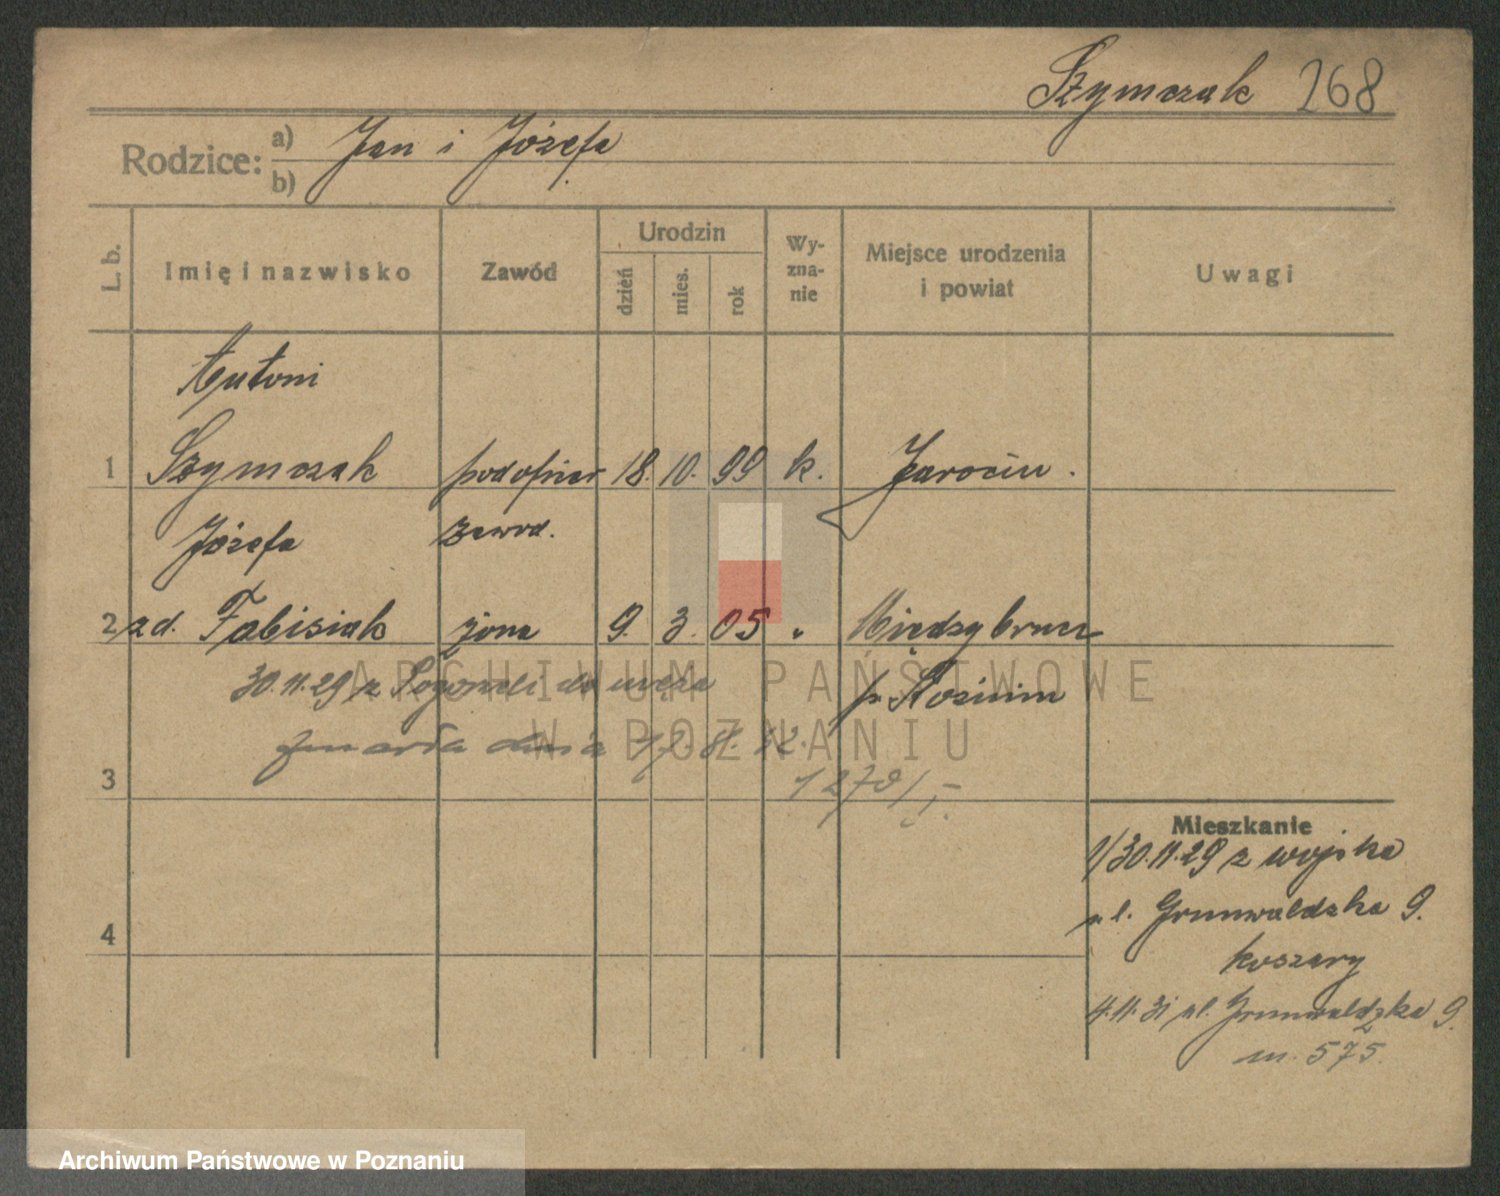 Szymczak 268
Rodzice: a) Jan i Józefa
b)
L. b.
Imię i nazwisko
Zawód
Urodzin
dzień
mies.
rok
Wy-
zna-
nie
Miejsce urodzenia
i powiat
Uwagi
Antoni
1 Szymczak podoficer 18. 10. 99 k. Jarocin.
Józefa zawod.
2 zd. Fabisiak żona 9. 3. 05 „
30.11.29 z do męża p. Koźmin
zmarła dnia
3
1270/I.
4
Mieszkanie
1/30.11.29 z wojska
ul. Grunwaldzka 9.
koszary
4.11.31 ul. Grunwaldzka 9.
m. 575.
ARCHIWUM PAŃSTWOWE
W POZNANIU
Archiwum Państwowe w Poznaniu